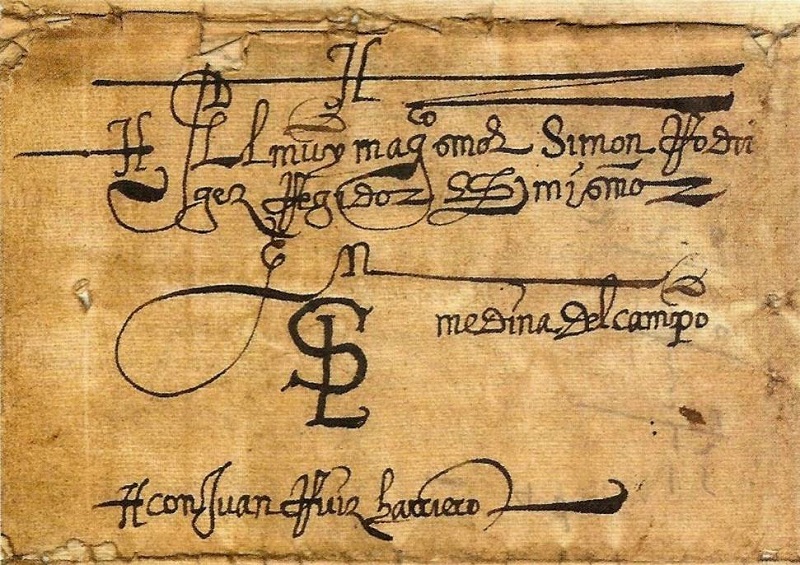 Al muy magco señor Simon Rodri
guez Regidor &c mi señor
En
medina del campo
con Juan Ruiz harriero